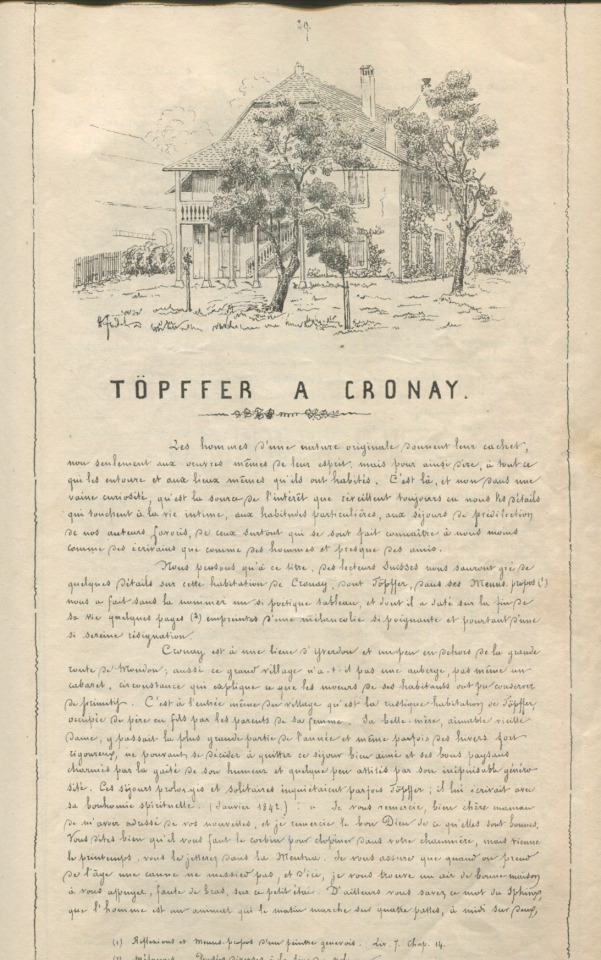 29
TÖPFFER A CRONAY.
Les hommes d'une nature originale donnent leur cachet,
non seulement aux œuvres mêmes de leur esprit, mais pour ainsi dire, à tout ce
qui les entoure et aux lieux mêmes qu'ils ont habités. C'est là, et non dans une
vaine curiosité, qu'est la source de l'intérêt que réveillent toujours en nous les détails
qui touchent à la vie intime, aux habitudes particulières, aux séjours de prédilection
de nos auteurs favoris, de ceux surtout qui se sont fait connaître à nous moins
comme des écrivains que comme des hommes et presque des amis.
Nous pensons qu'à ce titre, des lecteurs Suisses nous sauront gré de
quelques détails sur cette habitation de Cronay, dont Töpffer, dans ses Menus propos (1)
nous a fait sans la nommer un si poétique tableau, et dont il a daté sur la fin de
sa vie quelques pages (2) empreintes d'une mélancolie si poignante et pourtant d'une
si sereine résignation.
Cronay est à une lieue d'Yverdon et un peu en dehors de la grande
route de Moudon; aussi ce grand village n'a-t-il pas une auberge, pas même un
cabaret, circonstance qui explique ce que les mœurs de ses habitants ont pu conserver
de primitif. C'est à l'entrée même du village qu'est la rustique habitation de Töpffer,
occupée de père en fils par les parents de sa femme. Sa belle-mère, aimable vieille
dame, y passait la plus grande partie de l'année et même parfois des hivers fort
rigoureux, ne pouvant se décider à quitter ce séjour bien aimé et ses bons paysans
charmés par la gaîté de son humeur et quelque peu attirés par son inépuisable généro-
sité. Ces séjours prolongés et solitaires inquiétaient parfois Töpffer; il lui écrivait avec
sa bonhomie spirituelle. (Janvier 1842.) : « Je vous remercie, bien chère maman
de m'avoir adressé de vos nouvelles, et je remercie le bon Dieu de ce qu'elles sont bonnes.
Vous dites bien qu'il vous faut le corbin pour clopiner dans votre chaumière, mais vienne
le printemps, vous le jetterez dans la Mentua. Je vous assure que quand on prend
de l'âge une canne ne messied pas, et d'ici, je vous trouve un air de bonne maison
à vous appuyer, faute de bras, sur ce petit étai. D'ailleurs vous savez ce mot du Sphinx,
que l'homme est un animal qui le matin marche sur quatre pattes, à midi sur deux,
(1) Réflexions et Menus-propos d'un peintre genevois. Liv. 7. Chap. 14.